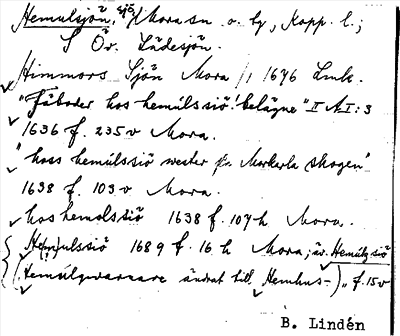 Hemulsjön, sjö, Mora sn o. by, Kopp. l.;
S Öv. Lädesjön.
Himmors Sjön Mora /1 1676 Lmk.
"Fäboder hos hemulssiö belägne" II A I:3
1636 f. 235v Mora.
"hoss hemulssiö wester skogen"
1638 f. 103v Mora.
hos hemolssiö 1638 f. 107h Mora.
Hemulssiö 1689 f. 16 h Mora; äv. Hemulgsiö
(Hemulgwarnare ändrat till Hemhus-) " f. 15v
B. Lindén